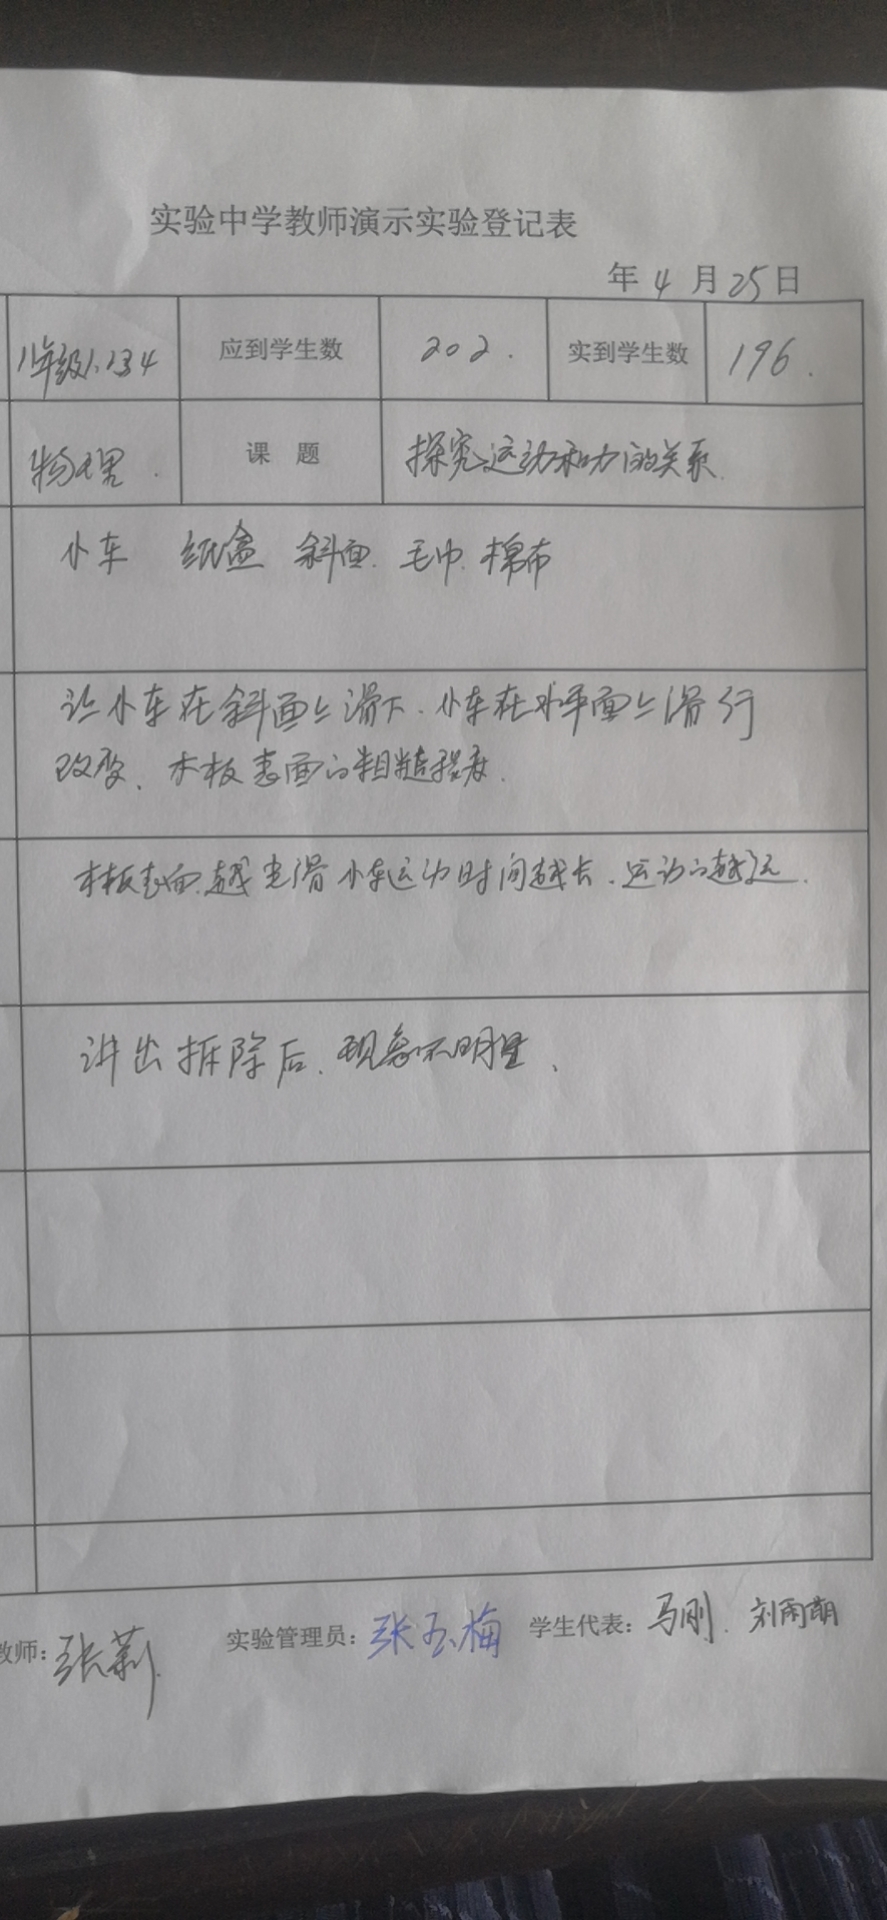 实验中学教师演示实验登记表
年 4 月 25 日
八年级1.2.3.4 应到学生数 202. 实到学生数 196.
物理. 课 题 探究运动和力的关系.
小车 纸盒 斜面. 毛巾. 棉布
让小车在斜面上滑下.小车在水平面上滑行
改变、木板表面的粗糙程度.
木板表面.越光滑小车运动时间越长.运动的越远.
讲出拆除后.现象不明显、
教师: 张莉. 实验管理员: 张玉梅 学生代表: 马刚. 刘雨萌